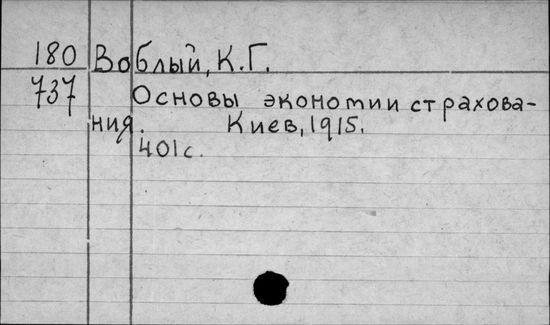 180 Воблый, К.Г.
737 Основы экономии страхова-
ния. Киев, 1915.
401 с.